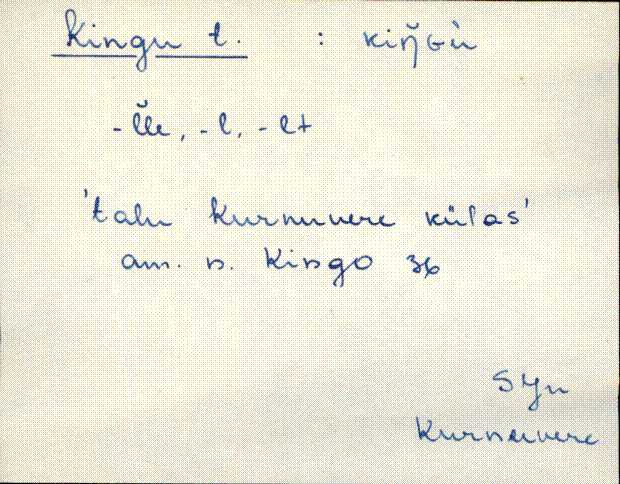 Kingu t. : kiŋ̆Gù
-l̆le, -l, -lt
'talu Kurnuvere külas'
am. n. Kingo 36
SJn
Kurnuvere